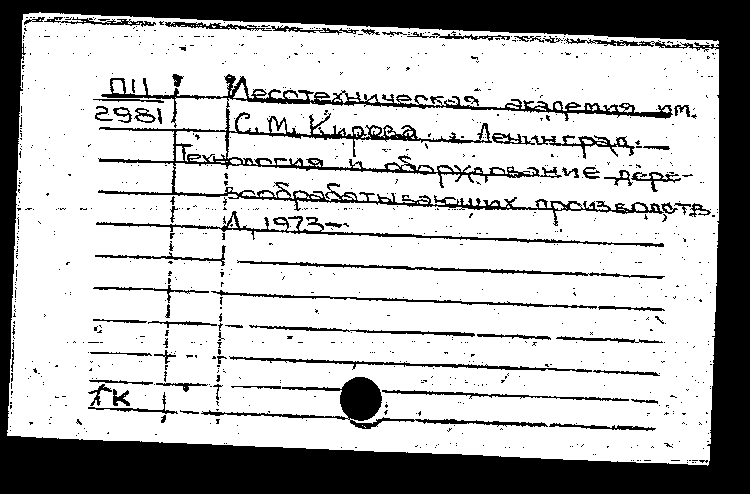 П11
2981
Лесотехническая академия им.
С.М. Кирова. Ленинград.
Технология и оборудование дере-
вообрабатывающих производств.
Л., 1973-.
ГК